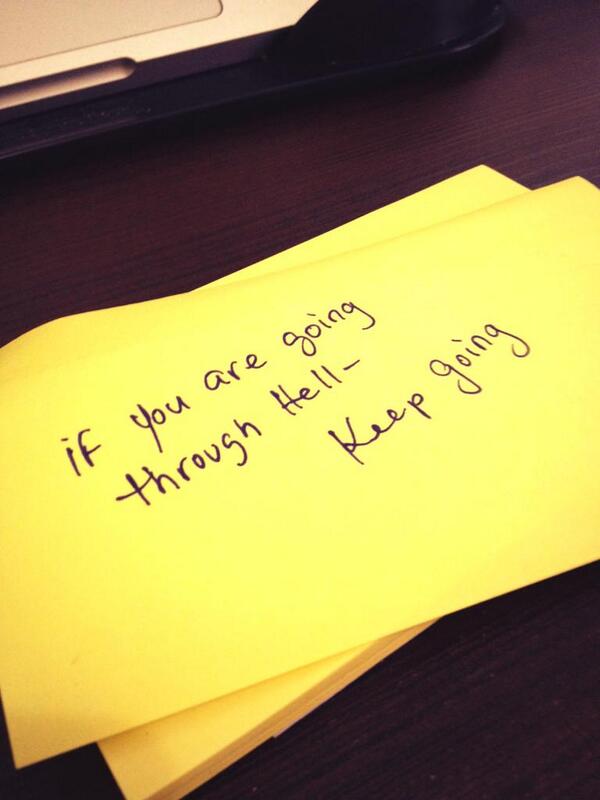 if you are going
through Hell-
Keep going